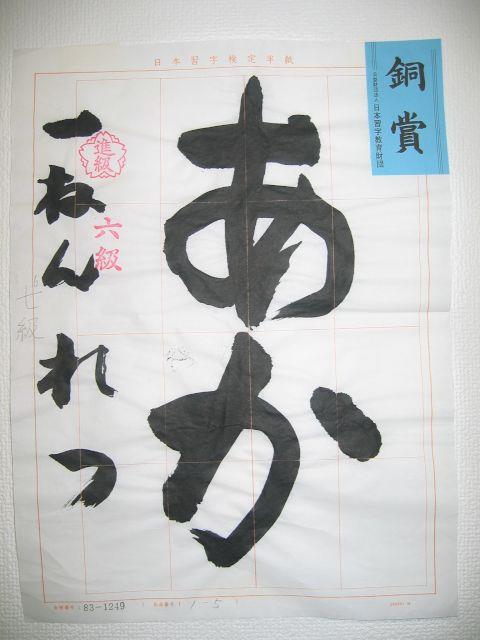 日本習字検定半紙
銅賞
公益財団法人日本習字教育財団
あか
進級
六級
一ねん れつ
七級
83-1249
1-5